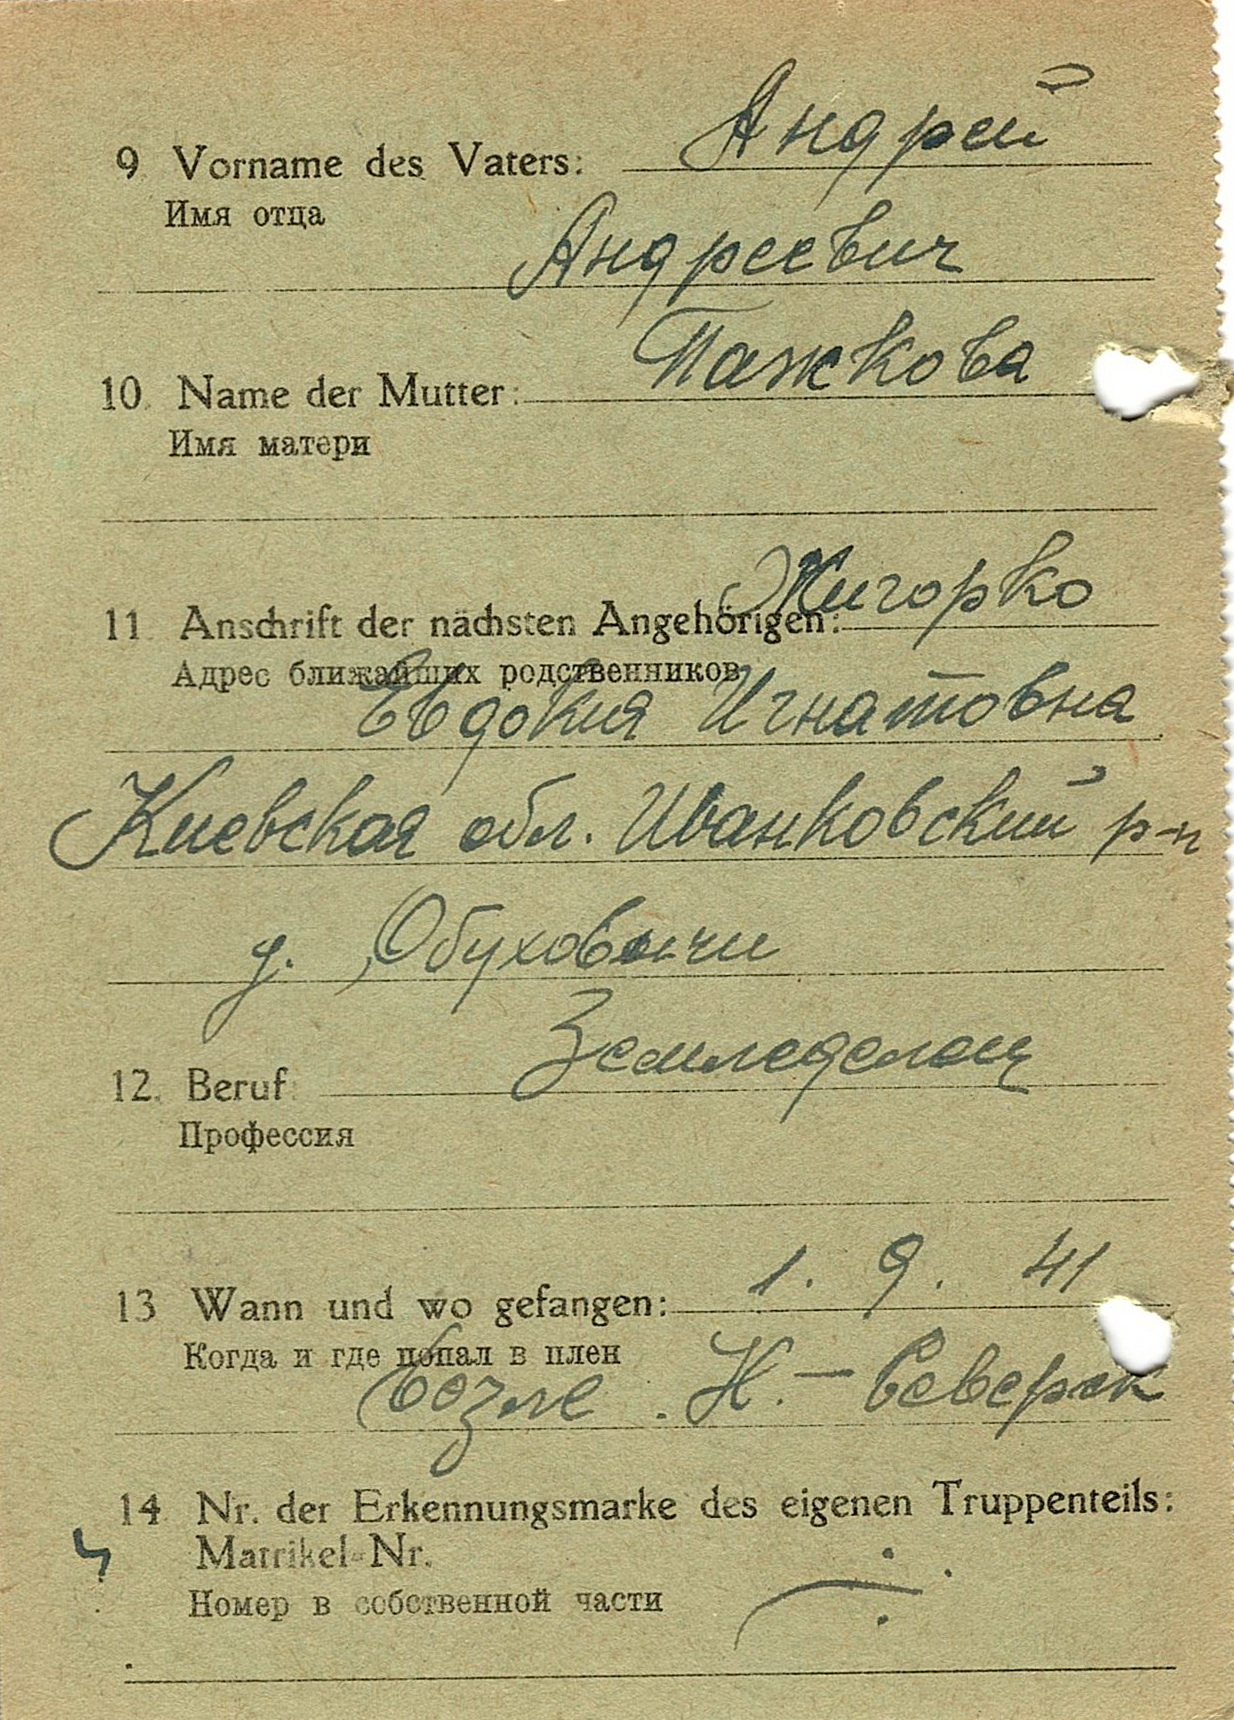 Андрей
9 Vorname des Vaters:
Имя отца
Андреевич
Пажкова
10. Name der Mutter:
Имя матери
Жигорко
11 Anschrift der nächsten Angehörigen:
Адрес ближайших родственников
Евдокия Игнатовна
Киевская обл. Иванковский р-н
д. Обуховичи
Земледелец
12. Beruf
Профессия
1. 9. 41
13 Wann und wo gefangen:
Когда и где попал в плен
Возле Н.-Северск
14 Nr. der Erkennungsmarke des eigenen Truppenteils:
Matrikel-Nr.
Номер в собственной части